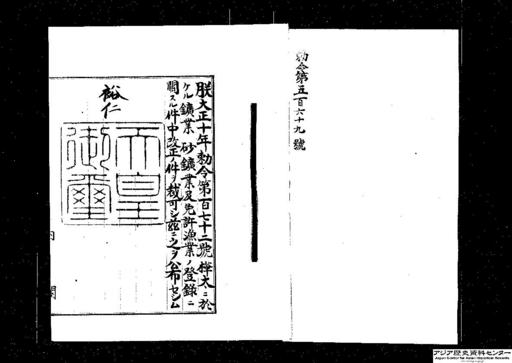 勅令第五百六十九號
朕大正十年勅令第百七十二號樺太ニ於
ケル鑛業砂鑛業及免許漁業ノ登錄ニ
關スル件中改正ノ件ヲ裁可シ茲ニ之ヲ公布セシム
裕仁
天皇
御璽
內閣
アジア歴史資料センター
Japan Center for Asian Historical Records